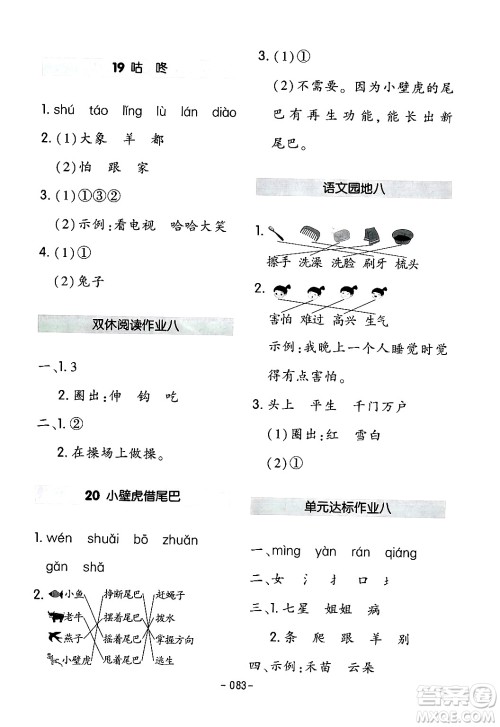 19 咕 咚
1. shú táo līng lù lán diào
2. (1) 大象 羊 都
(2) 怕 跟 家
3. (1) ①③②
(2) 示例：看电视 哈哈大笑
4. (1) ①
(2) 兔子
双休阅读作业八
一、1. 3
2. 圈出：伸 钩 吃
二、1. ②
2. 在操场上做操。
20 小壁虎借尾巴
1. wén shuǎi bō zhuǎn
gǎn shǎ
2. 小鱼 挣断尾巴 赶蝇子
老牛 摇着尾巴 拨水
燕子 摆着尾巴 掌握方向
小壁虎 甩着尾巴 逃生
3. (1) ①
(2) 不需要。因为小壁虎的尾
巴有再生功能，能长出新
尾巴。
语文园地八
1.
擦手 洗澡 洗脸 刷牙 梳头
2.
害怕 难过 高兴 生气
示例：我晚上一个人睡觉时觉
得有点害怕。
3. 头上 平生 千门万户
(1) 圈出：红 雪白
(2) ①
单元达标作业八
一、mìng yàn rán qiáng
二、女 氵 扌 口 阝
三、1. 七星 姐姐 病
2. 条 爬 跟 羊 别
四、示例：禾苗 云朵
- 083 -